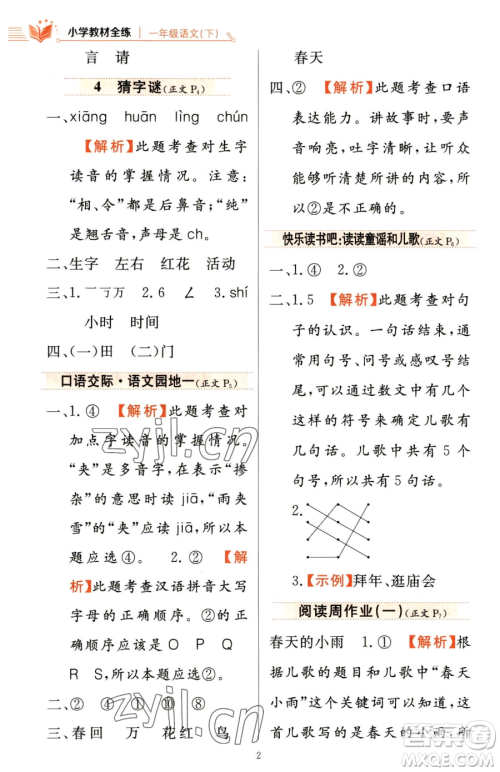 小学教材全练 一年级语文(下)
言 请
4 猜字谜(正文P4)
一、xiāng huān lìng chún
【解析】此题考查对生字
读音的掌握情况。注意:
“相、令”都有后鼻音;“纯”
是翘舌音,声母是ch。
二、生字 左右 红花 活动
三、1.一丆万 2.6 ∠ 3.shí
小时 时间
四、(一)田 (二)门
口语交际·语文园地一(正文P5)
一、1.④ 【解析】此题考查对
加点字读音的掌握情况。
“夹”是多音字,在表示“掺
杂”的意思时读jiā,“雨夹
雪”的“夹”应读jiā,所以本
题应选④。 2.② 【解
析】此题考查汉语拼音大写
字母的正确顺序。本题的
正确顺序应该是 O P Q
R S,所以本题应选②。
二、② ④ ① ③
三、春回 万 花红 鸟
春天
四、② 【解析】此题考查口语
表达能力。讲故事时,要声
音响亮,吐字清晰,让听众
能够听清楚所讲的内容,所
以应选②。
快乐读书吧:读读童谣和儿歌(正文P6)
一、1.④ 2.②
二、1.5 【解析】此题考查对句
子的认识。一句话结束,通
常用句号、问号或感叹号表
示。可以通过数文中有几个
这样的符号来了解儿歌有
几句话。儿歌中共有5个
句号,所以共有5句话。
2.
3.【示例】拜年、逛庙会
阅读周作业(一)(正文P7)
春天的小雨 1.① 【解析】根
据儿歌的题目和儿歌中“春天
小雨”这个关键词可以知道,这
首儿歌写的是春天的小雨,所
2
zyjl.cn
zyjl.cn